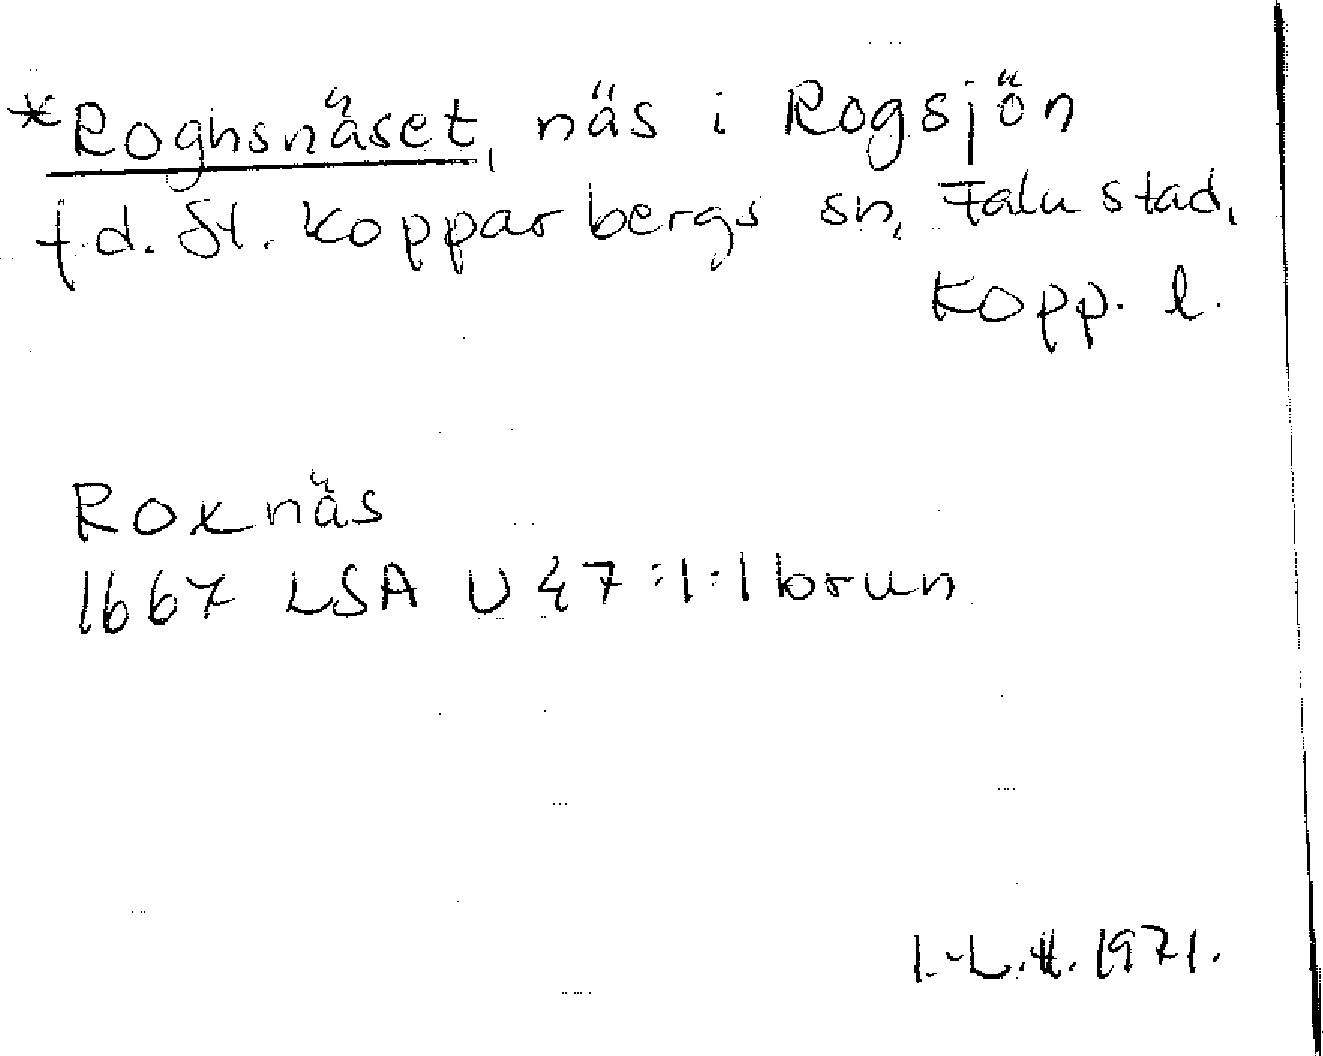 *Roghsnäset, näs i Rogsjön
f.d. St. Kopparbergs sn, Falu stad,
Kopp. l.
Roxnäs
1667 LSA U 47:1:1 brun
I.-L.H. 1971.